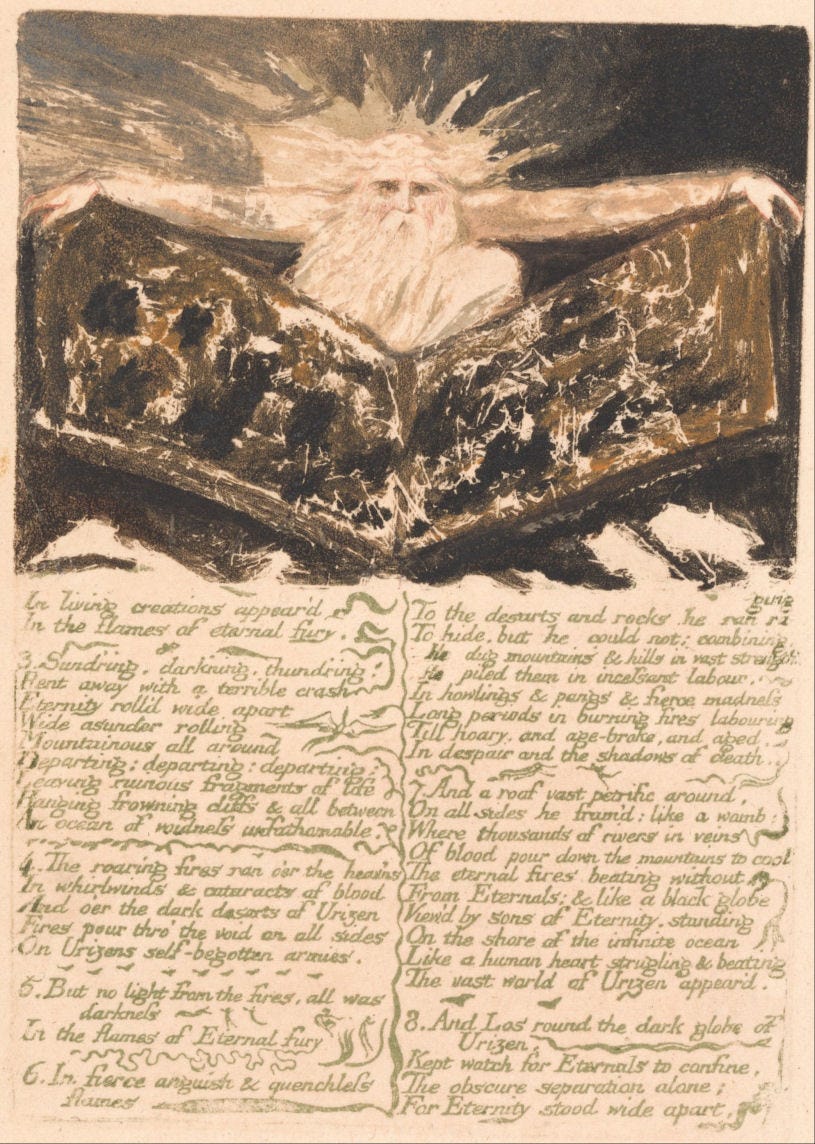 In living creations appear'd
In the flames of eternal fury.
3. Sundring, darkning, thundring!
Rent away with a terrible crash
Eternity roll'd wide apart
Wide asunder rolling
Mountainous all around
Departing; departing; departing:
Leaving ruinous fragments of life
Hanging frowning cliffs & all between
An ocean of voidness unfathomable.
4. The roaring fires ran o'er the heav'ns
In whirlwinds & cataracts of blood
And o'er the dark desarts of Urizen
Fires pour thro' the void on all sides
On Urizens self-begotten armies.
5. But no light from the fires, all was
darkness
In the flames of Eternal fury
6. In fierce anguish & quenchless
flames
To the desarts and rocks he ran ri
ging
To hide, but he could not: combining
He dug mountains & hills in vast strength,
He piled them in incessant labour,
In howlings & pangs & fierce madness
Long periods in burning fires labouring
Till hoary, and age-broke, and aged,
In despair and the shadows of death.
7. And a roof vast petrific around,
On all sides he fram'd: like a womb;
Where thousands of rivers in veins
Of blood pour down the mountains to cool
The eternal fires beating without
From Eternals; & like a black globe
View'd by sons of Eternity, standing
On the shore of the infinite ocean
Like a human heart strugling & beating
The vast world of Urizen appear'd.
8. And Los round the dark globe of
Urizen,
Kept watch for Eternals to confine,
The obscure separation alone;
For Eternity stood wide apart,